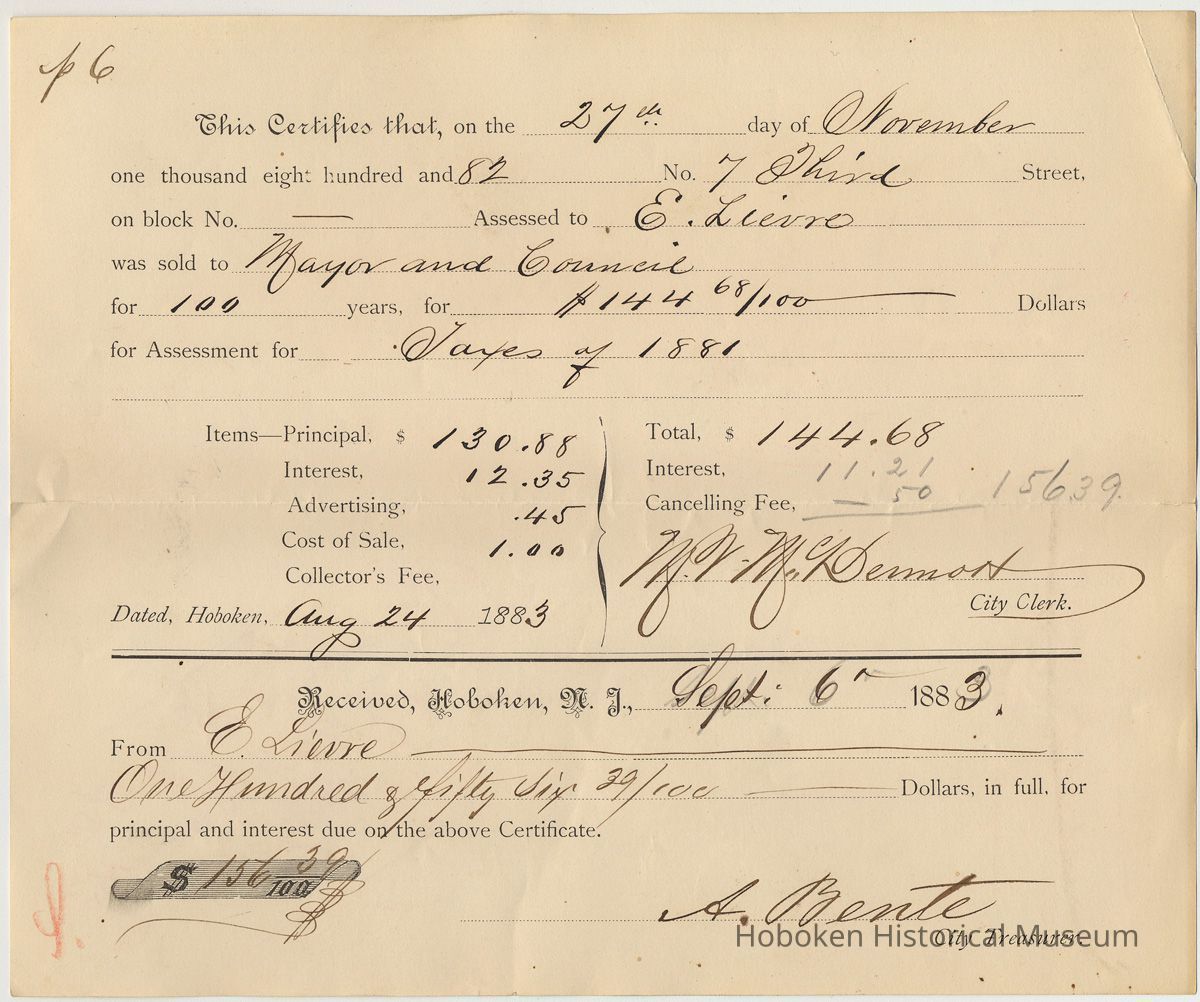 p 6
This Certifies that, on the 27th day of November
one thousand eight hundred and 82 No. 7 Third Street,
on block No. — Assessed to E. Lievre
was sold to Mayor and Council
for 100 years, for $144 68/100 Dollars
for Assessment for Taxes of 1881
Items—Principal, $ 130.88
Interest, 12.35
Advertising, .45
Cost of Sale, 1.00
Collector's Fee,
Total, $ 144.68
Interest, 11.21
Cancelling Fee, — 50 156.39
City Clerk.
Dated, Hoboken, Aug 24 1883
Received, Hoboken, N. J., Sept: 6th 1883.
From E. Lievre
One Hundred & fifty six 39/100 — Dollars, in full, for
principal and interest due on the above Certificate.
$ 156 39/100
A. Bente
City Treasurer.
Hoboken Historical Museum